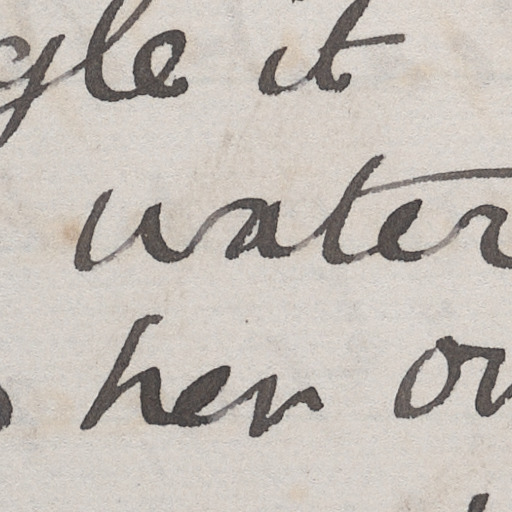 gle it
water
her ou